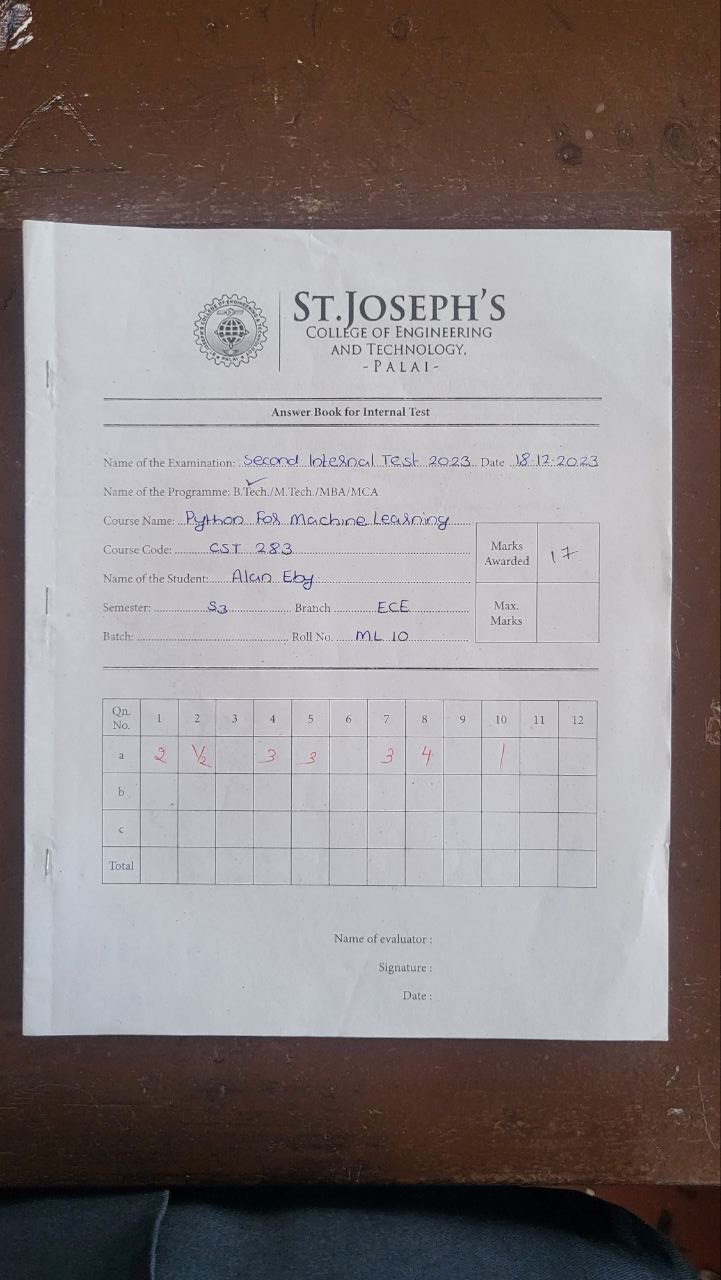 ST.JOSEPH'S
COLLEGE OF ENGINEERING
AND TECHNOLOGY,
- PALAI -
Answer Book for Internal Test
Name of the Examination: Second Internal Test 2023 Date 18-12-2023
Name of the Programme: B.Tech./M.Tech./MBA/MCA
Course Name: Python For Machine Learning
Course Code: CST 283
Name of the Student: Alan Eby
Semester: S3 Branch ECE
Batch: Roll No. ML 10
Marks Awarded 17
Max. Marks
Qn. No. 1 2 3 4 5 6 7 8 9 10 11 12
a 2 ½ 3 3 3 4 1
b
c
Total
Name of evaluator :
Signature :
Date :